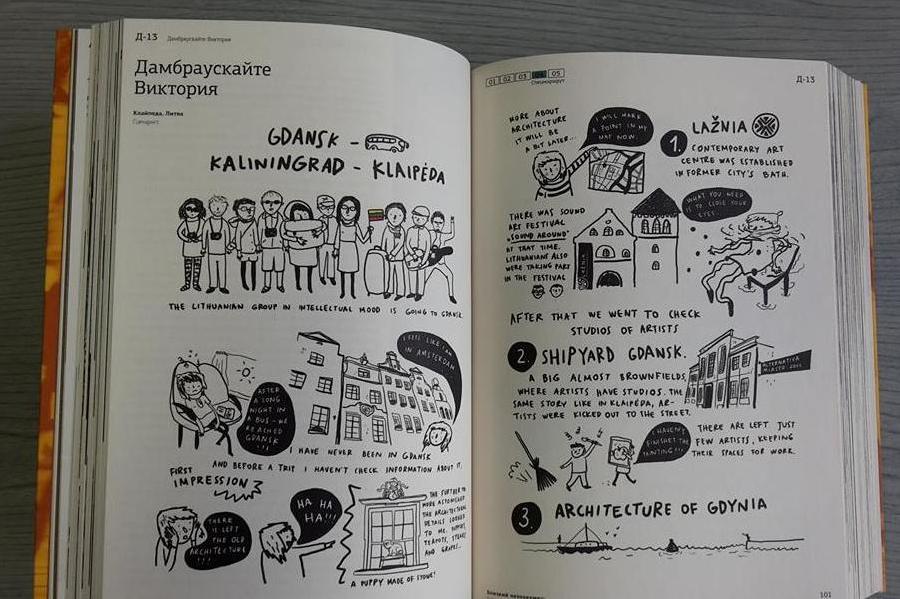 Д-13 Дамбраускайте Виктория
Дамбраускайте
Виктория
Клайпеда, Литва
GDANSK -
KALININGRAD - KLAIPĖDA
THE LITHUANIAN GROUP IN INTELLECTUAL MOOD IS GOING TO GDANSK
AFTER
A LONG
NIGHT IN
A BUS - WE
REACHED
GDANSK
!!!
I FEEL LIKE I AM
IN AMSTERDAM
I HAVE NEVER BEEN IN GDANSK
AND BEFORE A TRIP I HAVEN'T CHECK INFORMATION ABOUT IT.
FIRST
IMPRESSION?
THERE
IS LEFT
THE OLD
ARCHITECTURE
!!!
HA HA
HA!!!
THE FURTHER THE
MORE ASTONISHED
THE ARCHITECTURE
DETAILS LOOKED
TO ME.
TEAPOTS,
AND GRAPES...
A PUPPY MADE OF STONE!
01 02 03 04 05
Спецмаршрут
Д-13
MORE ABOUT
ARCHITECTURE
IT WILL BE
A BIT LATER...
I WILL MAKE
A POINT IN MY
MAP NOW.
1. LAŽNIA
CONTEMPORARY ART
CENTRE WAS ESTABLISHED
IN FORMER CITY'S BATH.
THERE WAS SOUND
ART FESTIVAL
„SOUND AROUND"
AT THAT TIME.
LITHUANIANS ALSO
WERE TAKING PART
IN THE FESTIVAL
WHAT YOU NEED
IS TO CLOSE YOUR
EYES..
AFTER THAT WE WENT TO CHECK
STUDIOS OF ARTISTS
2. SHIPYARD GDANSK.
A BIG ALMOST BROWNFIELDS,
WHERE ARTISTS HAVE STUDIOS. THE
SAME STORY LIKE IN KLAIPĖDA, AR-
TISTS WERE KICKED OUT TO THE STREET.
ALTERNATIVA
MIASTO 2011
I HAVEN'T
FINISHED THE
PAINTING!!!
THERE ARE LEFT JUST
FEW ARTISTS, KEEPING
THEIR SPACES FOR WORK.
3. ARCHITECTURE OF GDYNIA
101